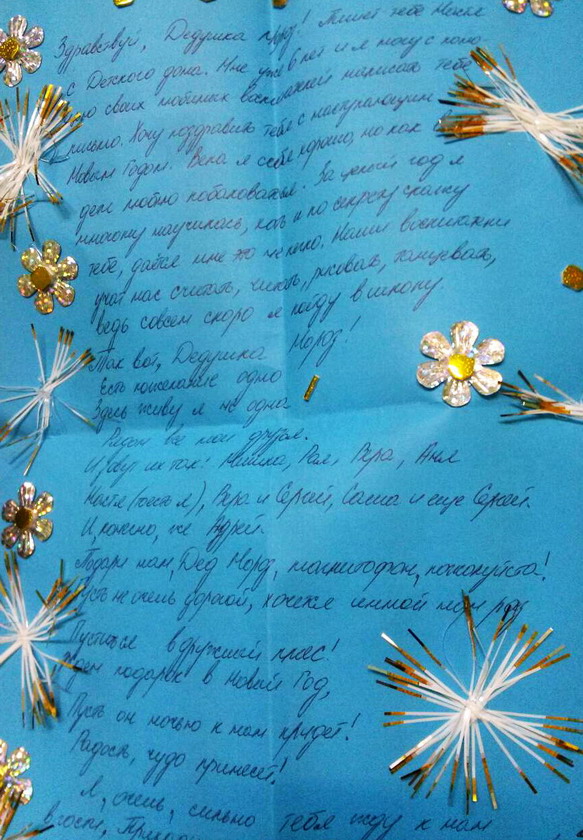 Здравствуй, Дедушка Мороз! Пишет тебе Настя
с Детского дома. Мне уже 6 лет и я могу с помо-
ю своих любимых воспитателей написать тебе
письмо. Хочу поздравить тебя с наступающим
Новым Годом. Вела я себя хорошо, но как
дети люблю побаловаться. За целый год я
многому научилась, хоть и по секрету скажу
тебе, даётся мне это не легко. Наши
учат нас считать, читать, рисовать, танцевать,
ведь совсем скоро я пойду в школу.
Так вот, Дедушка Мороз!
Есть пожелание одно
Здесь живу я не одна
Рядом все мои друзья.
И зовут их так: Мишка, Рая, Вера, Аня
Настя (тоесть я), Вера и Сергей, Саша и еще Сергей.
И, конечно, же Андрей.
Подари нам, Дед Мороз, магнитофон, пожалуйста!
Пусть не очень дорогой, хочется
в дружный пляс!
Ждем подарок в Новый Год,
Пусть он ночью к нам придет!
Радость, чудо принесет!
Я, очень, сильно тебя жду к нам
в гости,